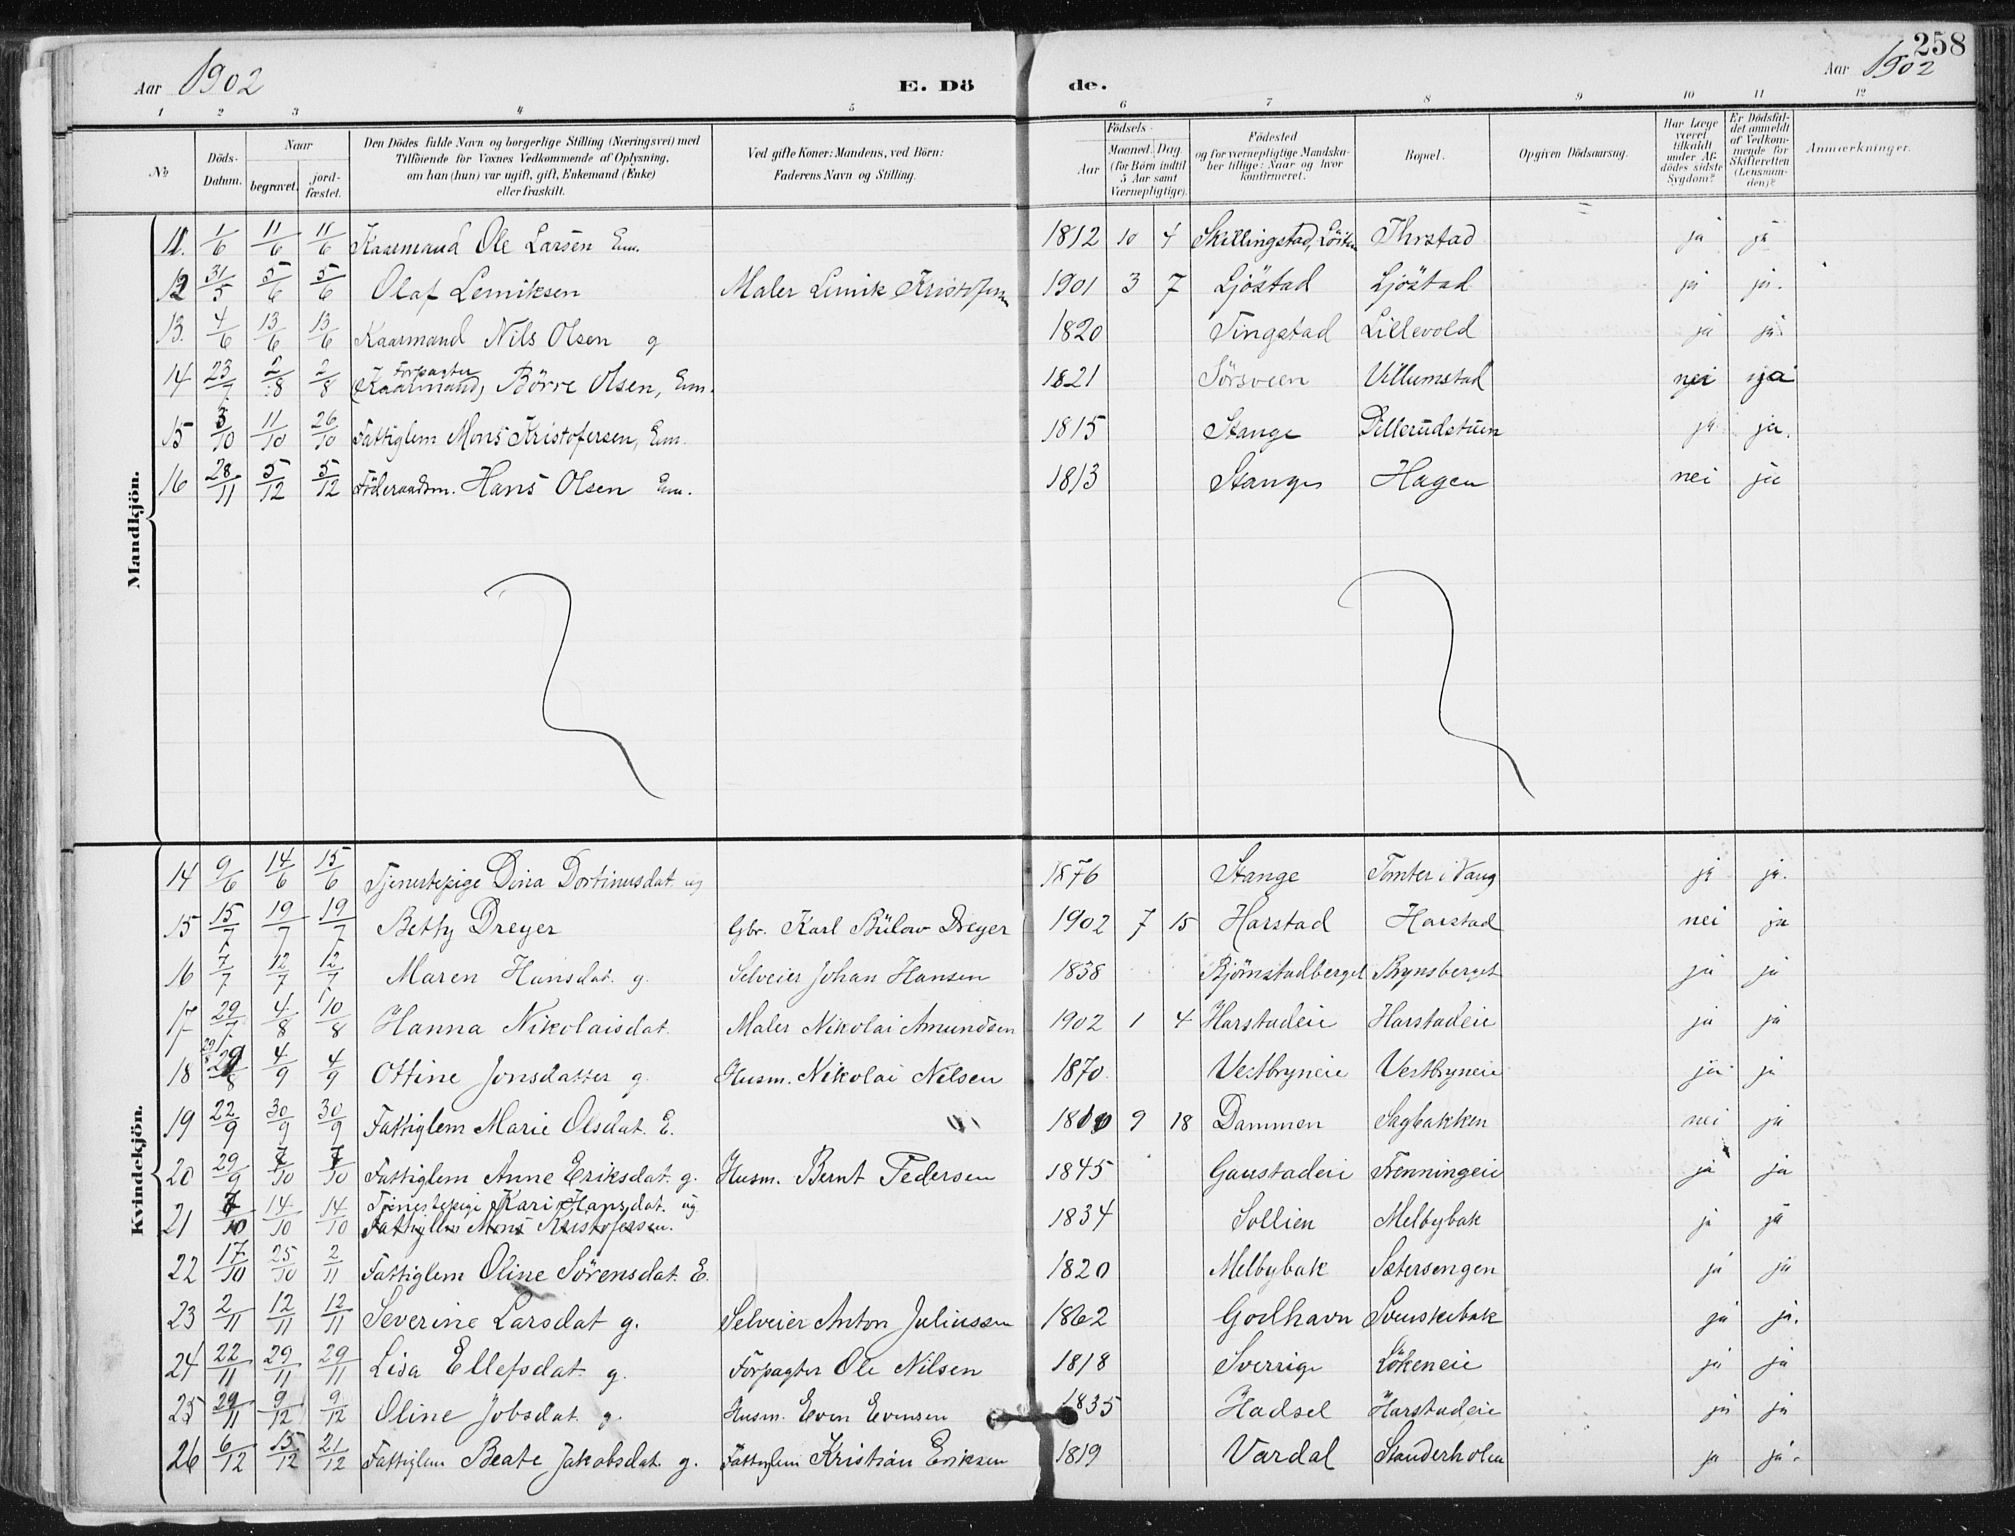 258
Aar 1902 E. Döde. Aar 1902
1 2 3 4 5 6 7 8 9 10 11 12
No Döds-Datum. Naar begravet. jord-fæstet. Den Dödes fulde Navn og borgerlige Stilling (Næringsvei) med Tilföiende for Voxnes Vedkommende af Oplysning, om han (hun) var ugift, gift, Enkemand (Enke) eller fraskilt. Ved gifte Koner: Mandens, ved Börn: Faderens Navn og Stilling. Födsels- Aar Maaned. Dag (for Börn indtil 5 Aar samt Værnepligtige). Födested og for værnepligtige Mandskaber tillige: Naar og hvor konfirmeret. Bopæl. Opgiven Dödsaarsag. Har Læge været tilkaldt under Afdödes sidste Sygdom? Er Dödsfaldet anmeldt af Vedkommende for Skifteretten (Lensmanden)? Anmærkninger.
Mandkjön.
11. 1/6 11/6 11/6 Kaarmand Ole Larsen Em. 1812 10 4 Skillingstad, Löiten Thrstad ja ja
12 31/5 5/6 5/6 Olaf Lemiksen Maler Limik Kristofersen 1901 3 7 Ljöstad Ljöstad ja ja.
13. 4/6 13/6 13/6 Kaarmand Nils Olsen g 1820 Tingstad Lillevold ja ja
14 23/7 2/8 2/8 Forpagter (Kaarmand) Börre Olsen, Em. 1821 Sörsveen Villumstad nei ja
15 3/10 11/10 26/10 Fattiglem Mons Kristofersen, Em. 1815 Stange Dillerudstuen ja ja.
16 28/11 5/12 5/12 Föderaadsm. Hans Olsen Em. 1813 Stange Hagen nei ja
Kvindekjön.
14 9/6 14/6 15/6 Tjenestepige Dina Dortinusdat. ug 1876 Stange Tomter i Vang ja ja.
15 15/7 19/7 19/7 Betty Dreyer Gbr. Karl Bülow Dreyer 1902 7 15 Harstad Harstad nei ja
16 7/7 12/7 12/7 Maren Hansdat. g. Selveier Johan Hansen 1838 Bjömstadberget Brynsberget ja ja
17 29/7 4/8 10/8 Hanna Nikolaisdat. Maler Nikolai Amundsen 1902 1 4 Harstadeie Harstadeie ja ja
18 29/8 4/9 4/9 Ottine Jonsdatter g. Husm. Nikolai Nilsen 1870 Vestbryneie Vestbryneie ja ja
19 22/9 30/9 30/9 Fattiglem Marie Olsdat. E. 1810 9 18 Dammen Sagbakken nei ja
20 29/9 7/10 7/10 Fattiglem Anne Eriksdat. g. Husm. Bernt Pedersen 1845 Gaustadeie Frenningeie ja ja
21 7/10 14/10 14/10 Tjenestepige Kari Hansdat. ug Fattiglem Mons Kristofersen. 1834 Sollien Melbybak ja ja
22 17/10 25/10 2/11 Fattiglem Oline Sörensdat. E. 1820 Melbybak Sætersengen ja ja
23 2/11 12/11 12/11 Severine Larsdat g. Selveier Anton Juliussen 1862 Godhavn Svenskebak ja ja.
24 22/11 29/11 29/11 Lisa Ellefsdat. g. Forpagter Ole Nilsen 1818 Sverrige Lökeneie ja ja
25 29/11 9/12 9/12 Oline Jobsdat. g. Husm. Even Evensen 1835 Hadsel Harstadeie ja ja
26 6/12 15/12 21/12 Fattiglem Beate Jakobsdat. g. Fattiglem Kristian Eriksen 1819 Vardal Standerholen ja ja.